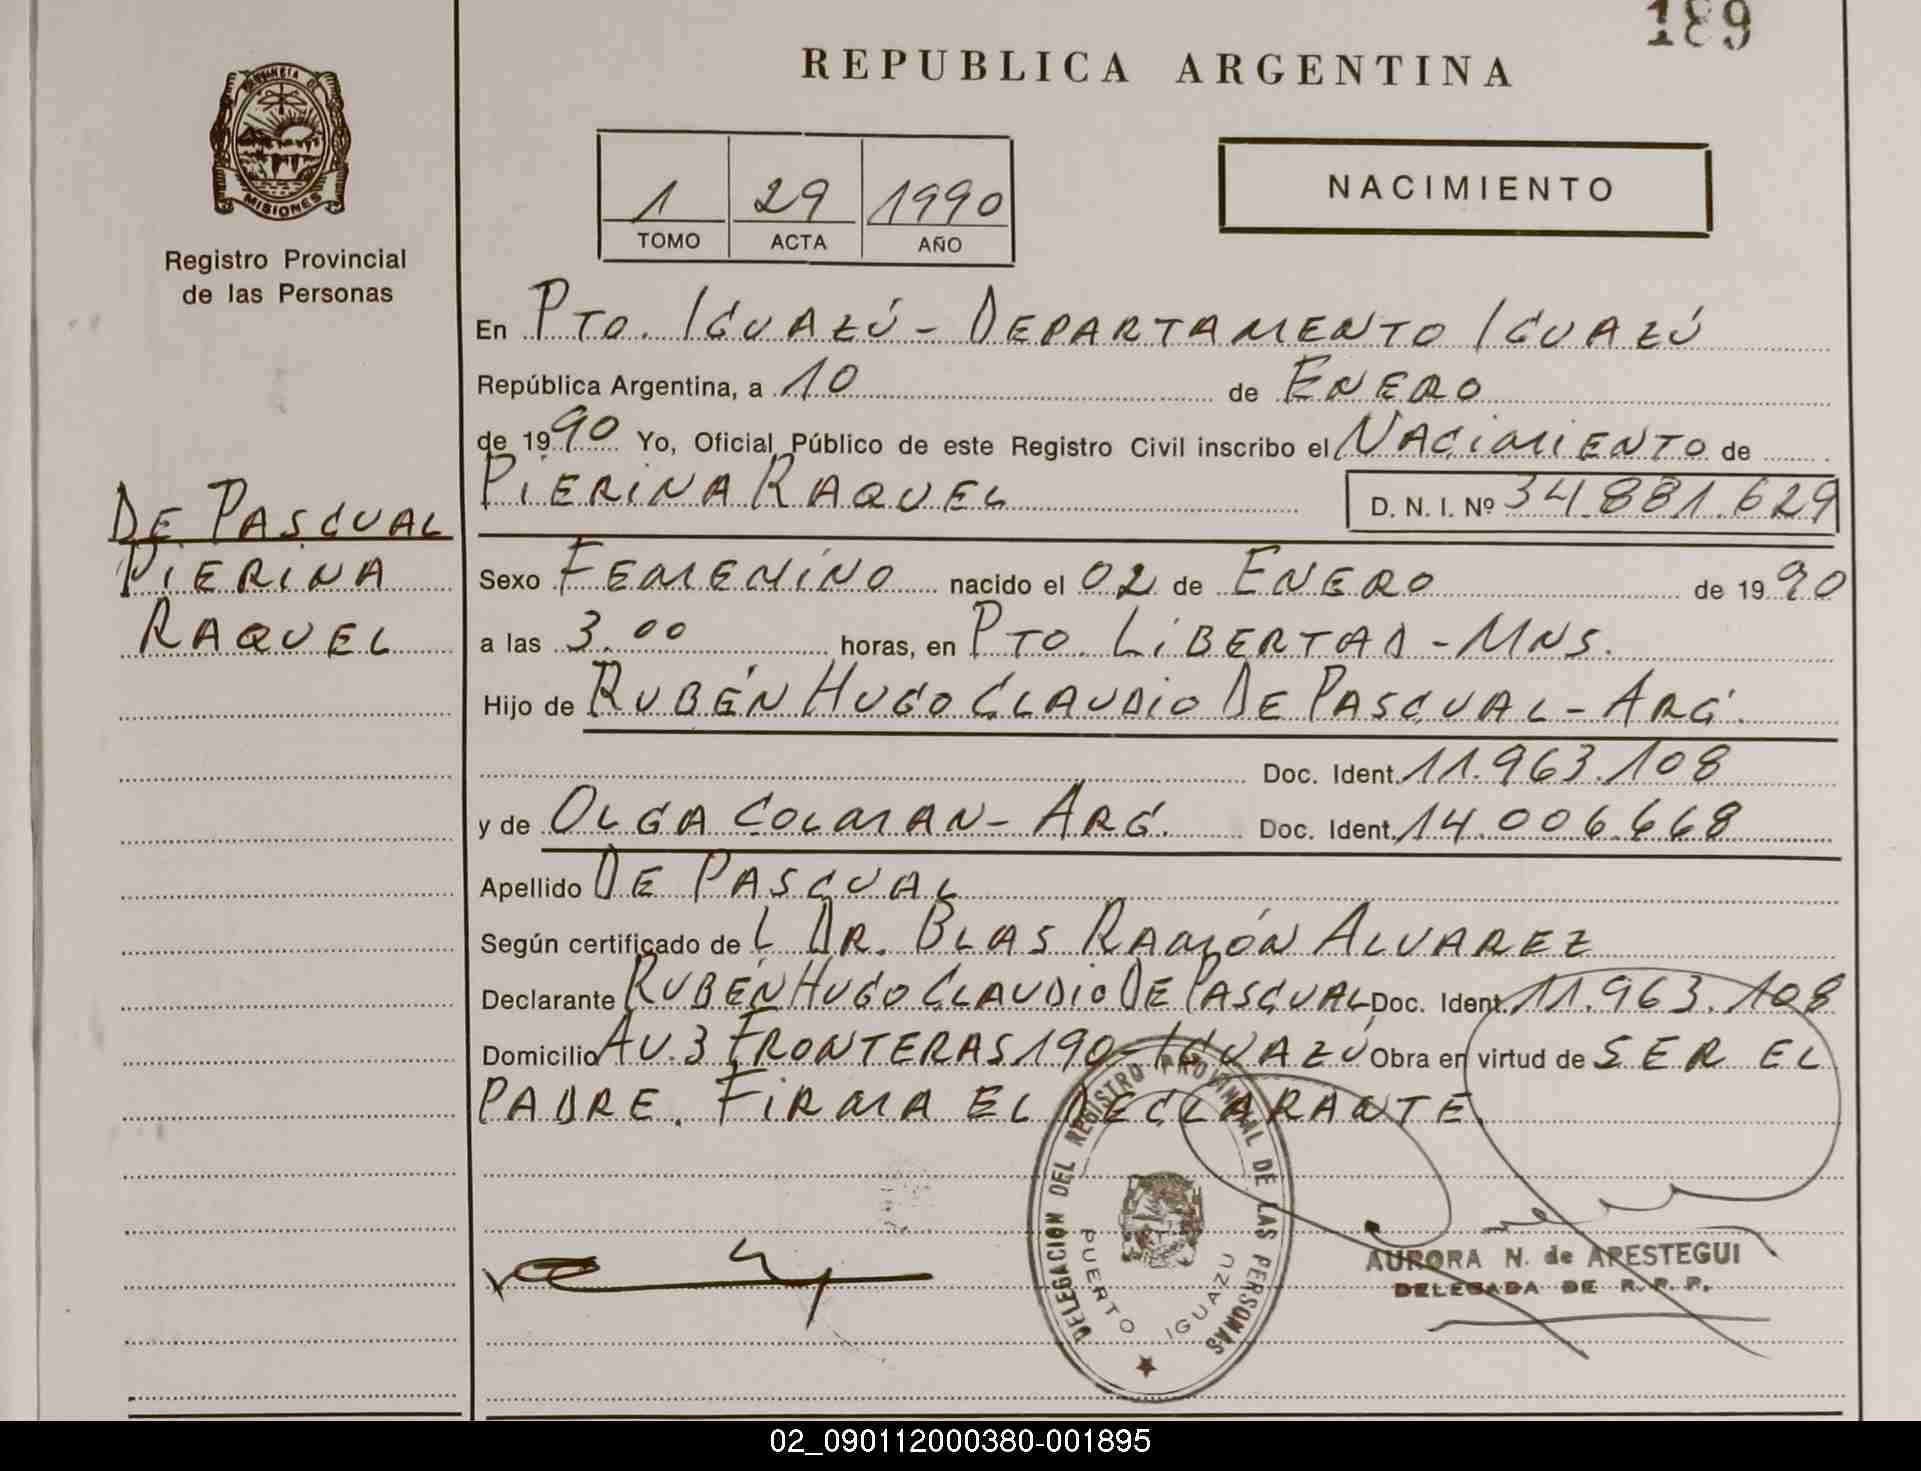 189
REPUBLICA ARGENTINA
PROVINCIA DE
MISIONES
Registro Provincial
de las Personas
1 29 1990
TOMO ACTA AÑO
NACIMIENTO
En PTO. IGUAZÚ - DEPARTAMENTO IGUAZÚ
República Argentina, a 10 de ENERO
de 1990 Yo, Oficial Público de este Registro Civil inscribo el NACIMIENTO de
PIERINA RAQUEL D. N. I. Nº 34.881.629
DE PASCUAL
PIERINA
RAQUEL
Sexo FEMENINO nacido el 02 de ENERO de 1990
a las 3.00 horas, en PTO. LIBERTAD - MNS.
Hijo de RUBÉN HUGO CLAUDIO DE PASCUAL - ARG.
Doc. Ident. 11.963.108
y de OLGA COLMAN - ARG. Doc. Ident. 14.006.668
Apellido DE PASCUAL
Según certificado de L DR. BLAS RAMÓN ALVAREZ
Declarante RUBÉN HUGO CLAUDIO DE PASCUAL Doc. Ident. 11.963.108
Domicilio AV. 3 FRONTERAS 190 - IGUAZÚ Obra en virtud de SER EL
PADRE. FIRMA EL DECLARANTE
DELEGACION DEL REGISTRO PROVINCIAL DE LAS PERSONAS
PUERTO IGUAZU
AURORA N. de ARESTEGUI
DELEGADA DE R. P. P.
02_090112000380-001895